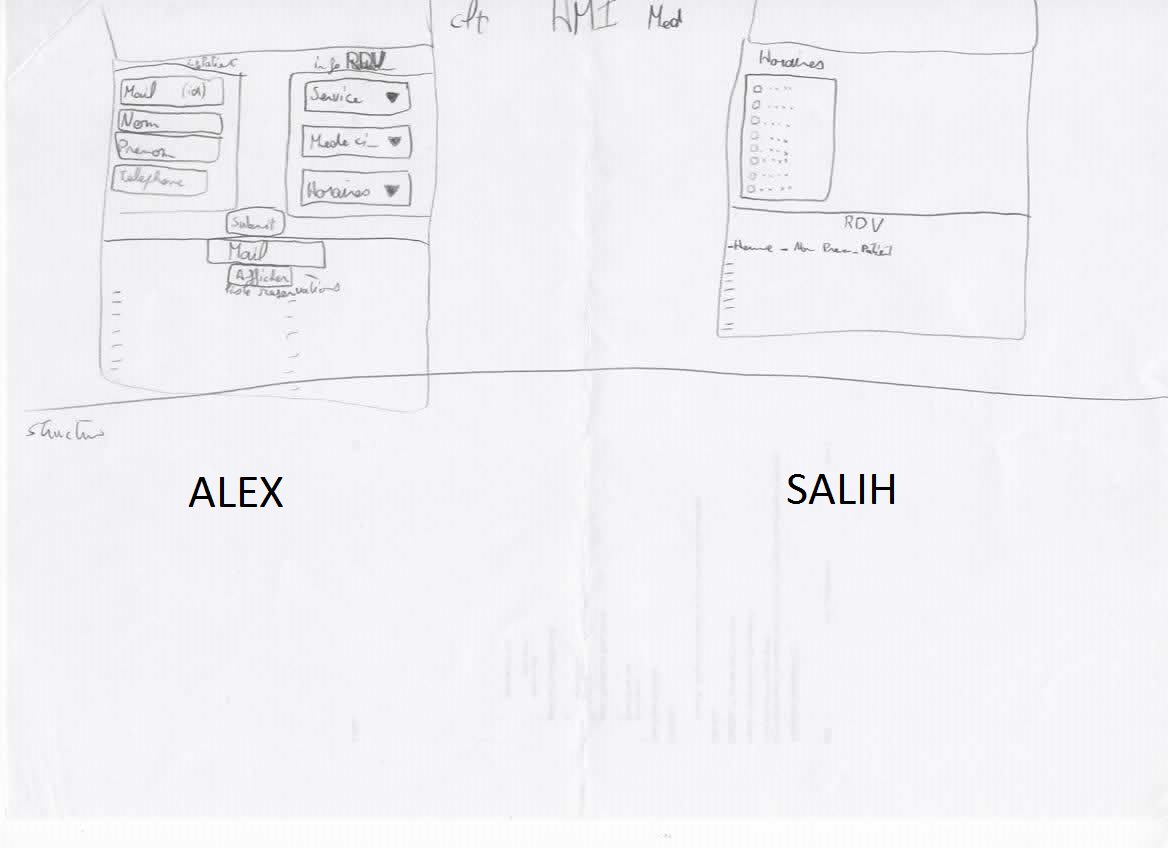 clt HMI Med
info RDV
Mail (id)
Nom
Prenom
Telephone
Service
Medeci
Horaires
Submit
Mail
Afficher
liste reservations
Horaires
RDV
-Heure - Nom Pren - Patient
structure
ALEX
SALIH